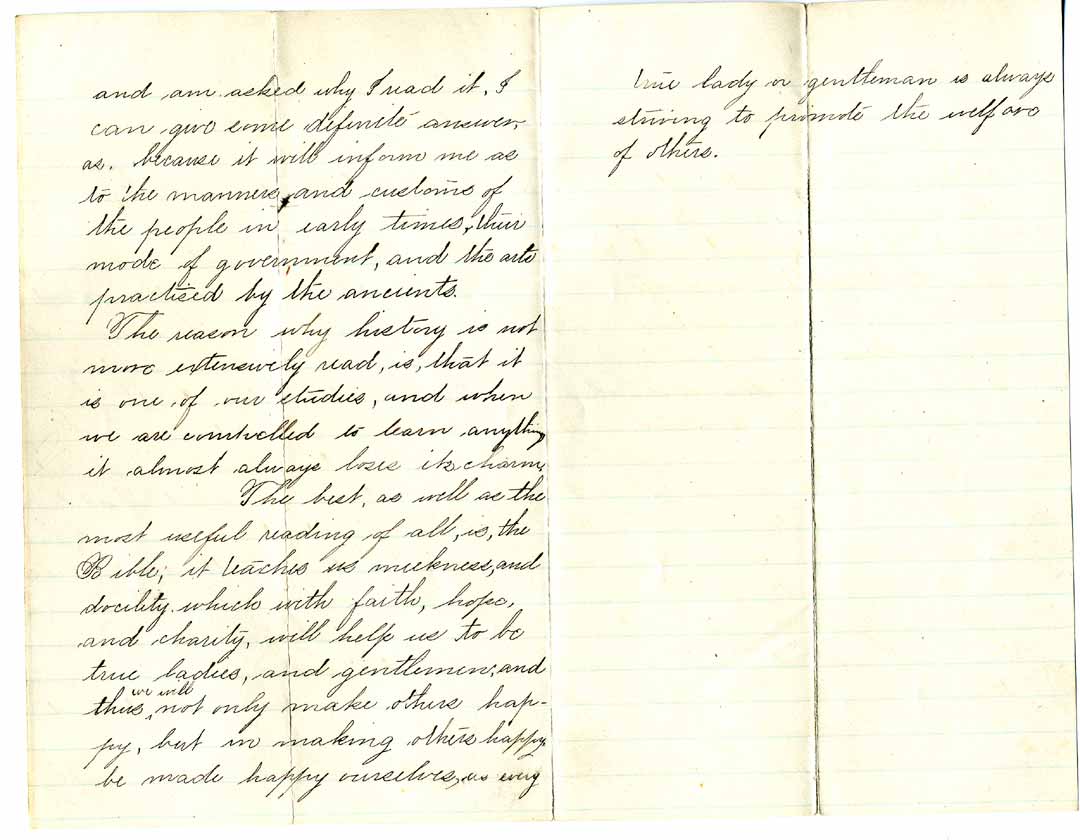 and am asked why I read it, I
can give some definite answer,
as, because it will inform me as
to the manners and customs of
the people in early times, their
mode of government, and the arts
practised by the ancients.
The reason why history is not
more extensively read, is, that it
is one of our studies, and when
we are controlled to learn anything
it almost always loses its charm.
The best, as well as the
most useful reading of all, is, the
Bible; it teaches us meekness, and
docility, which with faith, hope,
and charity, will help us to be
true ladies, and gentlemen; and
thus we will not only make others hap-
py, but in making others happy
be made happy ourselves, as every
true lady or gentleman is always
striving to promote the welfare
of others.